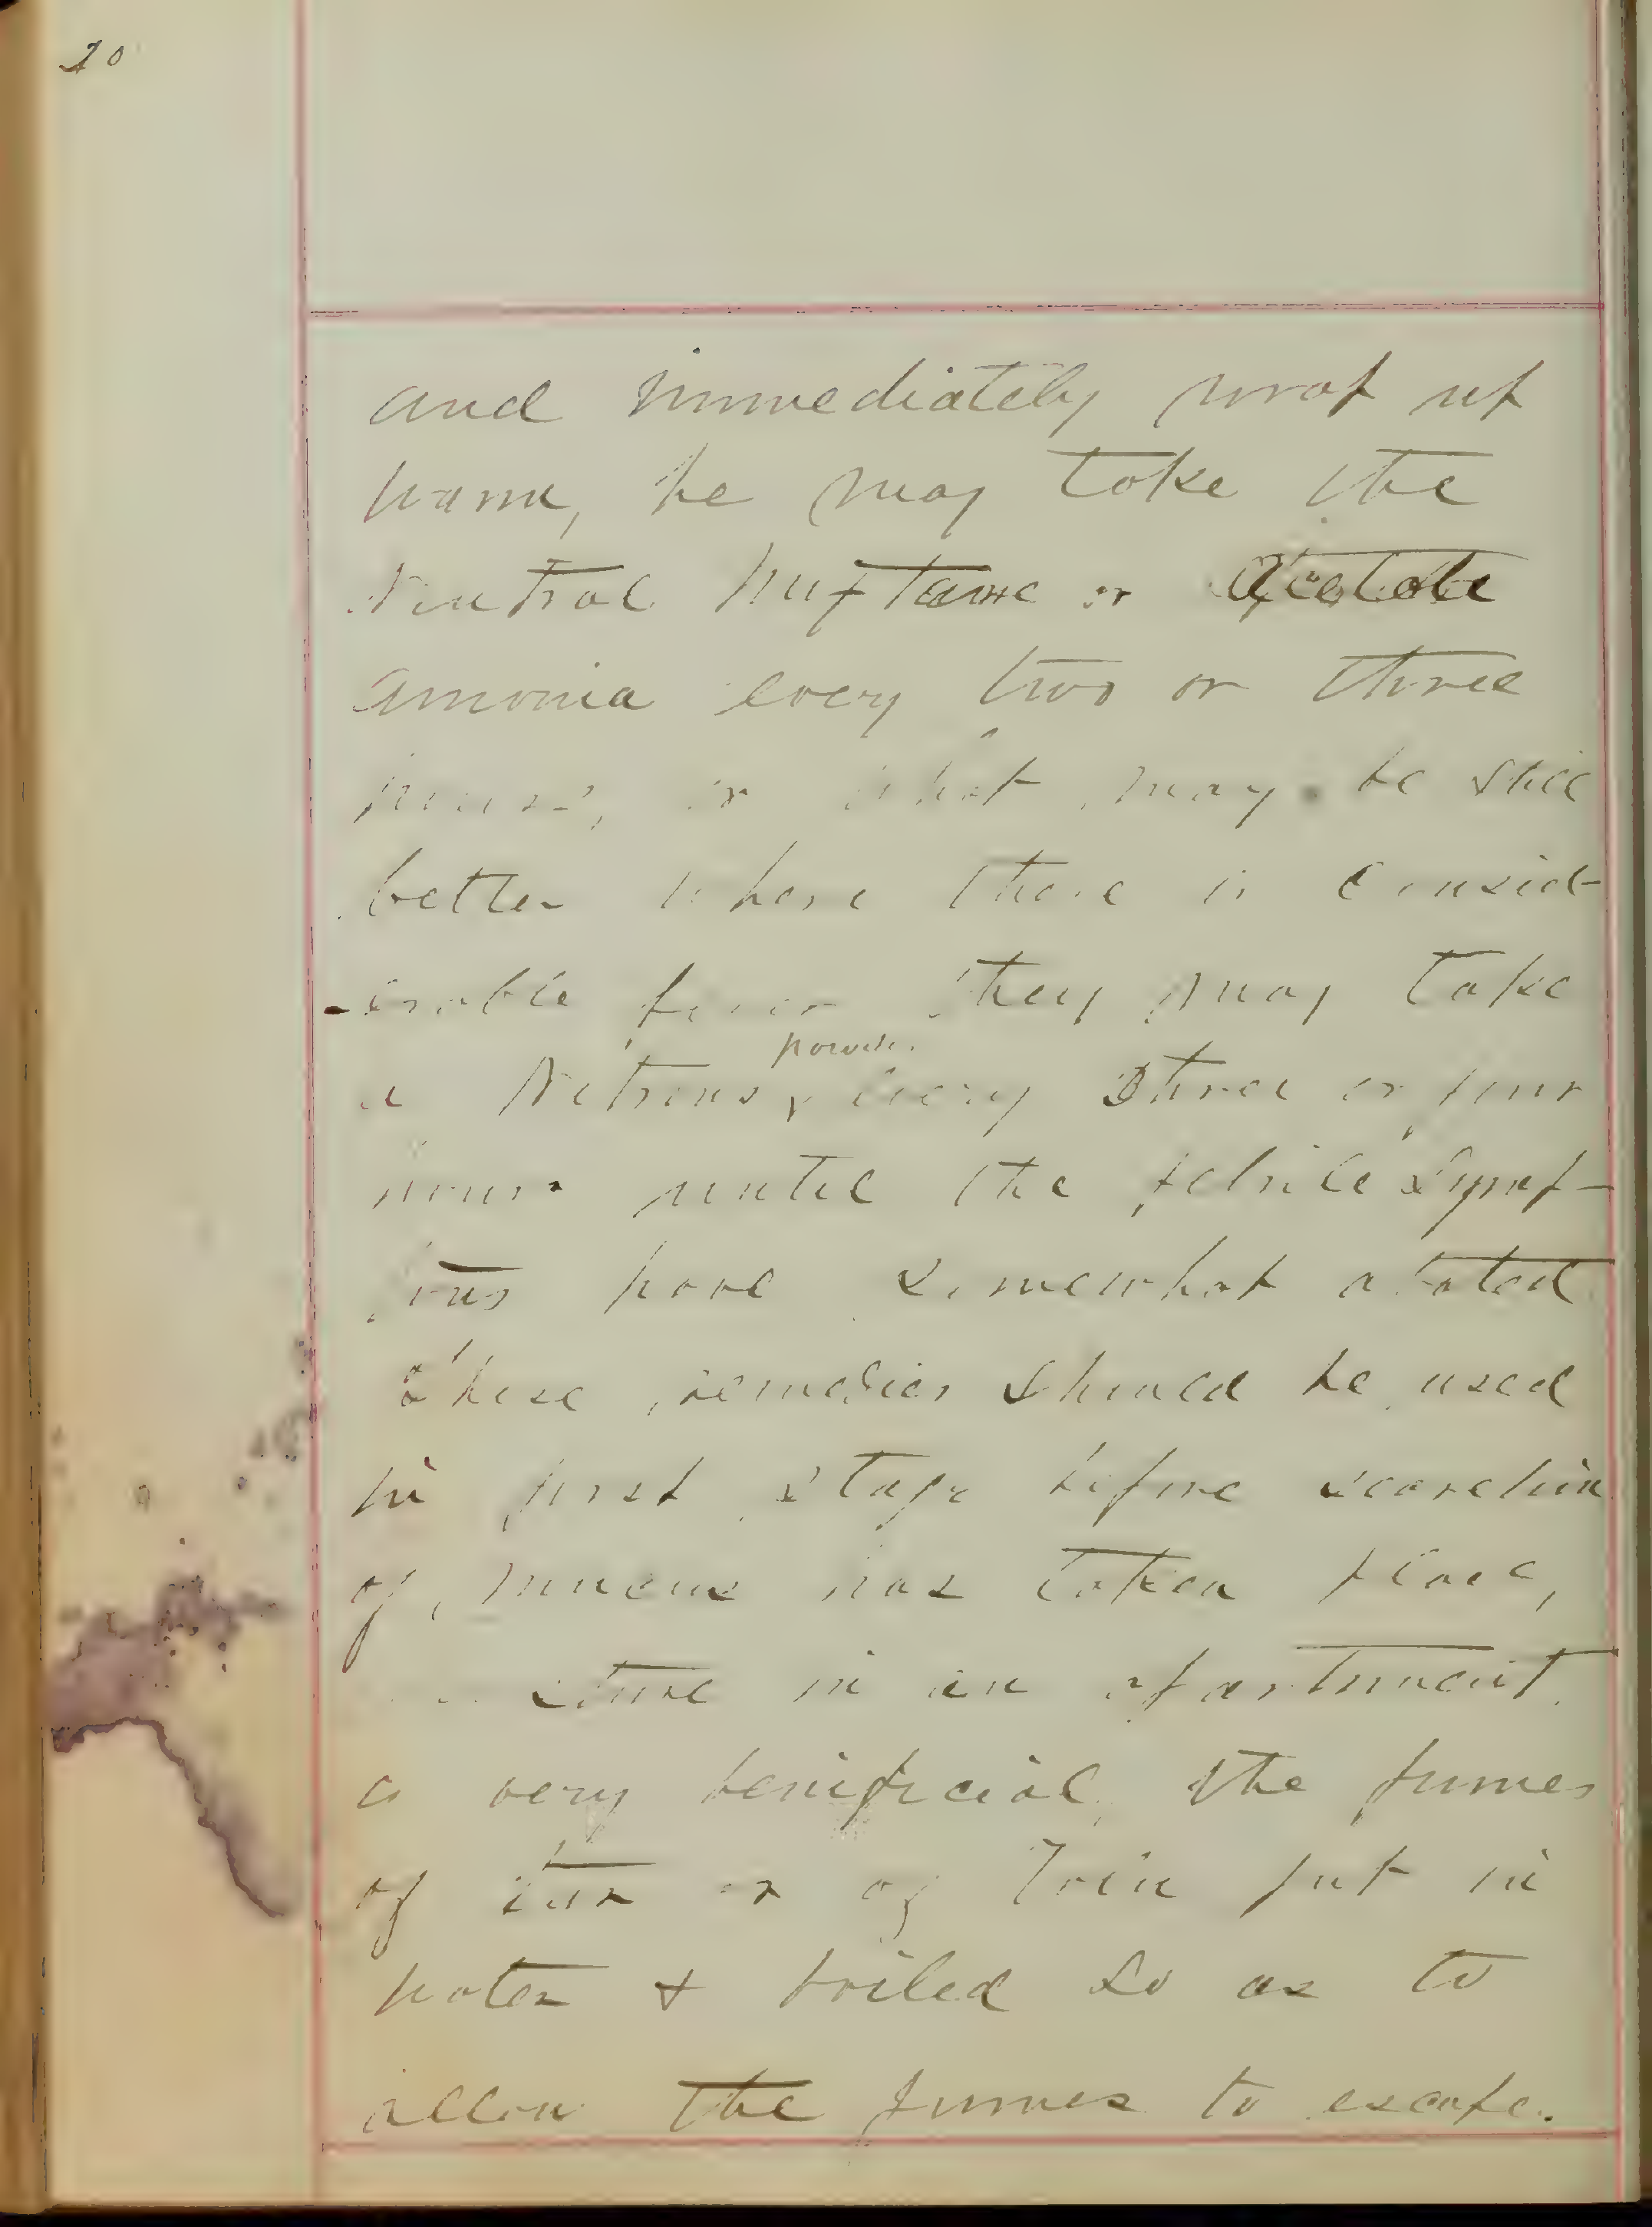 20
and immediately wrap up
warm, he may take the
Neutral mixture or Acetate
amonia every two or three
hours, or what may be still
better where there is consid-
-erable fever they may take
powder
a Nitrous every three or four
hours until the febrile symp-
toms have somewhat abated
These remedies should be used
in first stage before secretion
of mucus has taken place,
in an apartment
is very benificial, the fumes
of tar or of put in
water & boiled so as to
allow the fumes to escape.